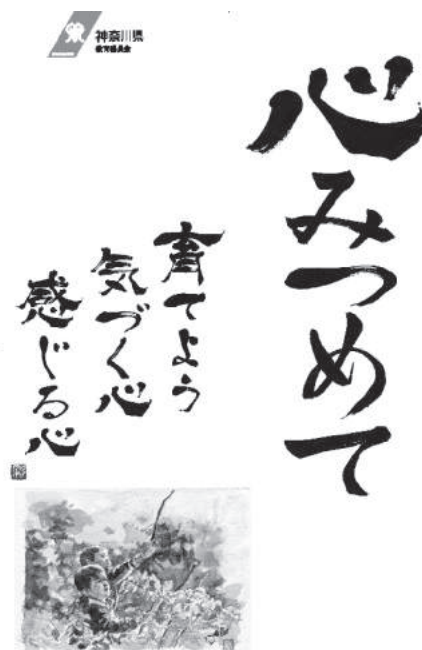 神奈川県
教育委員会
心みつめて
育てよう
気づく心
感じる心